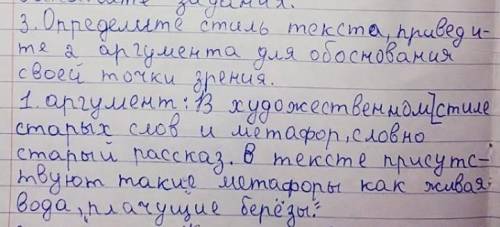 3. Определите стиль текста, приведи-
те 2 аргумента для обоснования
своей точки зрения.
1. аргумент: В художественном стиле
старых слов и метафор, словно
старый рассказ. В тексте присутс-
твуют такие метафоры как живая
вода, плачущие берёзы.